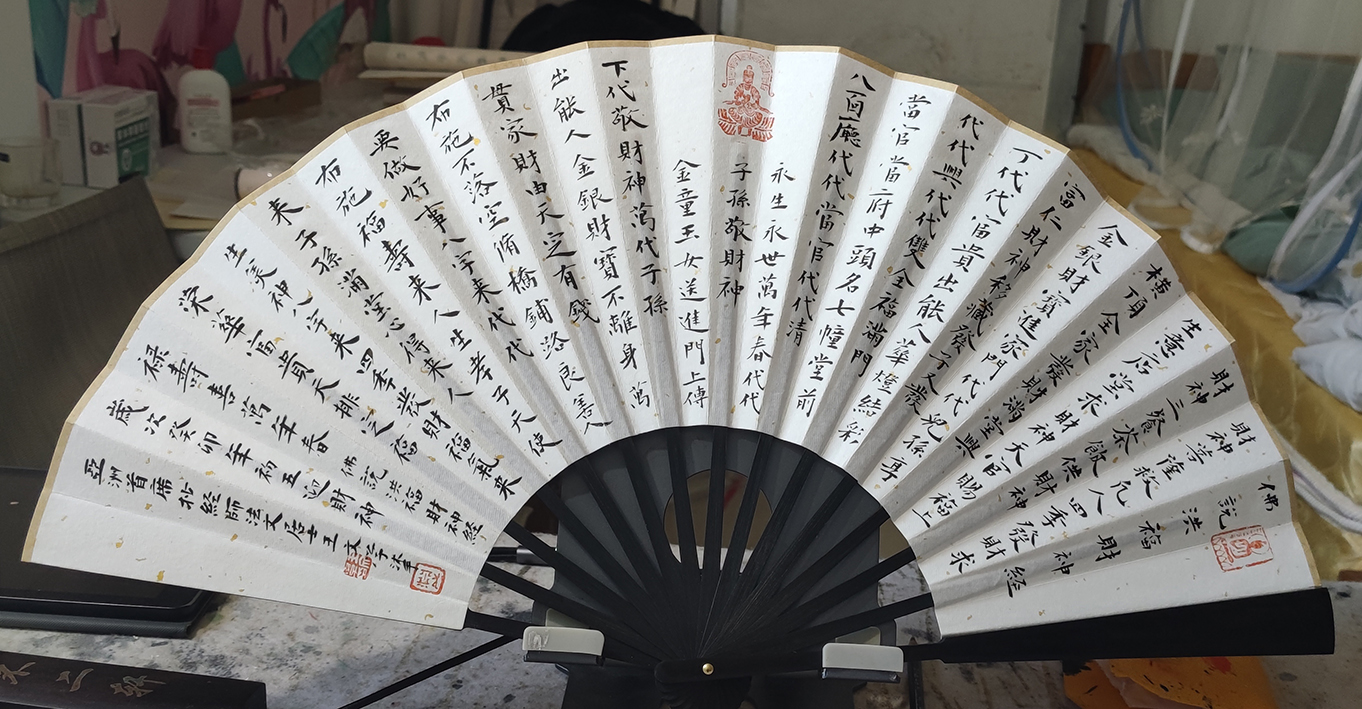 佛說洪福財神經
財神菩薩救凡人四季發財求
財神三餐茶飯供財神
生意店堂求財神天官賜福上
橫頂全家發財滿堂興
金銀財寶進家門代代
富仁財神移藏發子又發兒孫享
丁代代富貴出能人華燈結彩
代代興代代雙全福滿門
當官當府中頭名七幢堂前
八百廳代代當官代代清
永生永世萬年春代代
子孫敬財神
金童玉女送進門上傳
下代敬財神萬代子孫
出能人金銀財寶不離身萬
貫家財由天定有錢
布施不落空脩橋鋪路良善人
要做好事八字來代代
布施福壽來人生孝子天使
來子孫滿堂心得來人
生笑神八字來四季發財福氣來
榮華富貴天排定福
祿壽喜萬年春 佛說洪福財神經
歲次癸卯年初五迎財神
亞洲首席抄經師法文居士王文